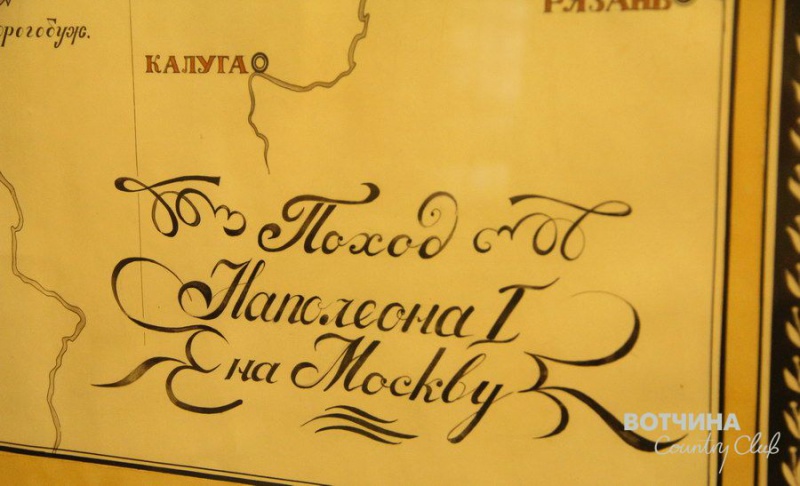 РЯЗАНЬ
КАЛУГА
Поход
Наполеона I
на Москву
ВОТЧИНА
Country Club